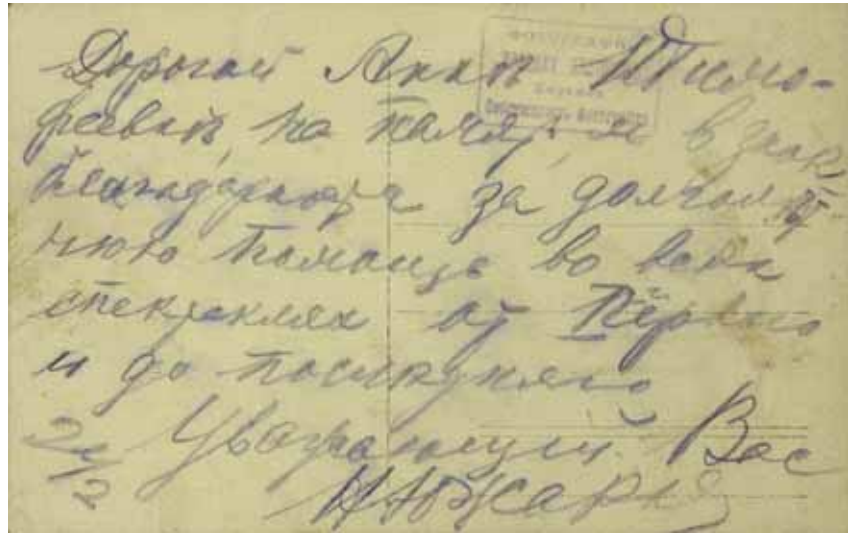 Дорогой Анне Тимо-
феевне, на память и в знак
благодарности за долголет-
нюю помощь во всех
спектаклях от первого
и до последнего
Уважающий Вас